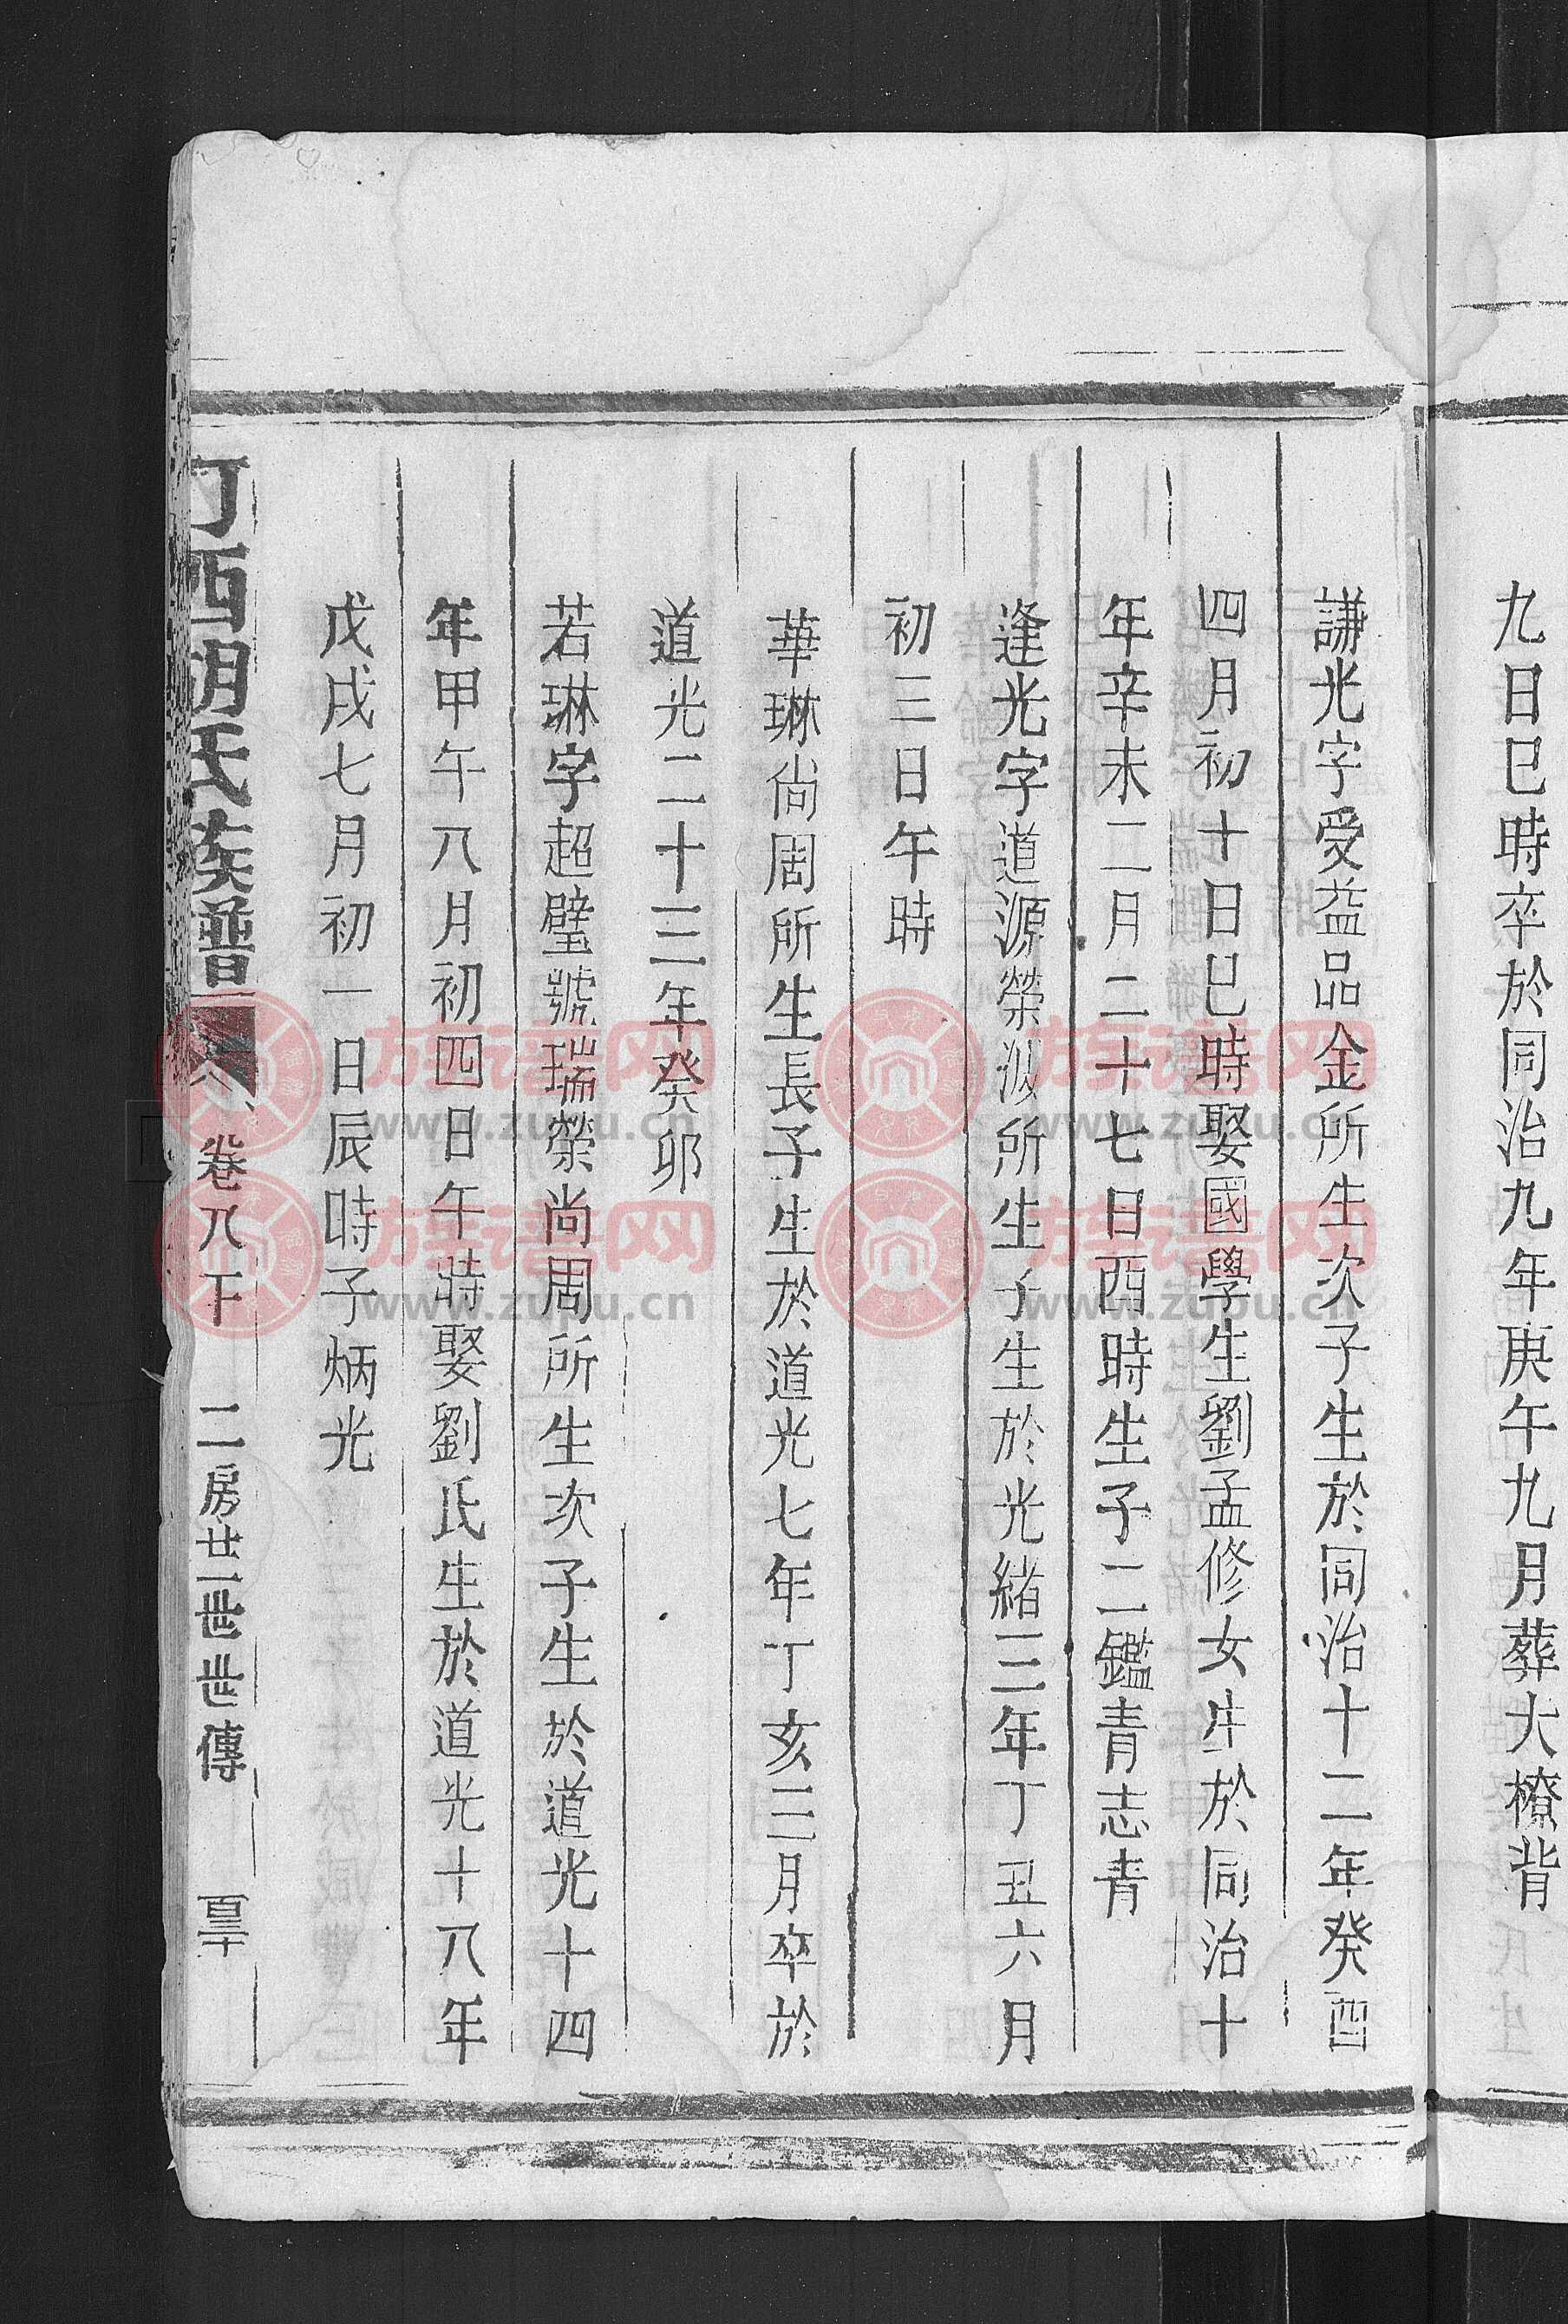 九日巳時卒於同治九年庚午九月葬大橑背
謙光字受益品金所生次子生於同治十二年癸酉
四月初十日巳時娶國學生劉孟修女生於同治十
年辛未二月二十七日酉時生子二鑑青志青
逢光字道源榮汲所生子生於光緒三年丁丑六月
初三日午時
華琳尚周所生長子生於道光七年丁亥三月卒於
道光二十三年癸卯
若琳字超璧號瑞榮尚周所生次子生於道光十四
年甲午八月初四日午時娶劉氏生於道光十八年
戊戌七月初一日辰時子炳光
西胡氏族譜
卷八下 二房廿一世世傳
族谱网
www.zupu.cn
族谱网
www.zupu.cn
族谱网
www.zupu.cn
族谱网
www.zupu.cn